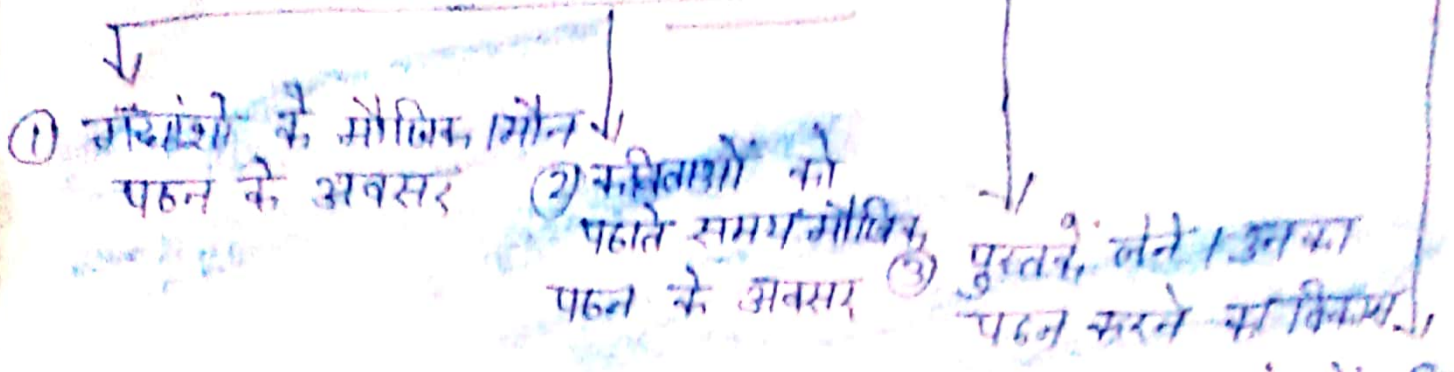 ① गद्यांशो के मौखिक / मौन
पठन के अवसर
② कविताओं को
पढाते समय मौखिक
पठन के अवसर
③ पुस्तकें, लेने / उनका
पठन करने का विकास